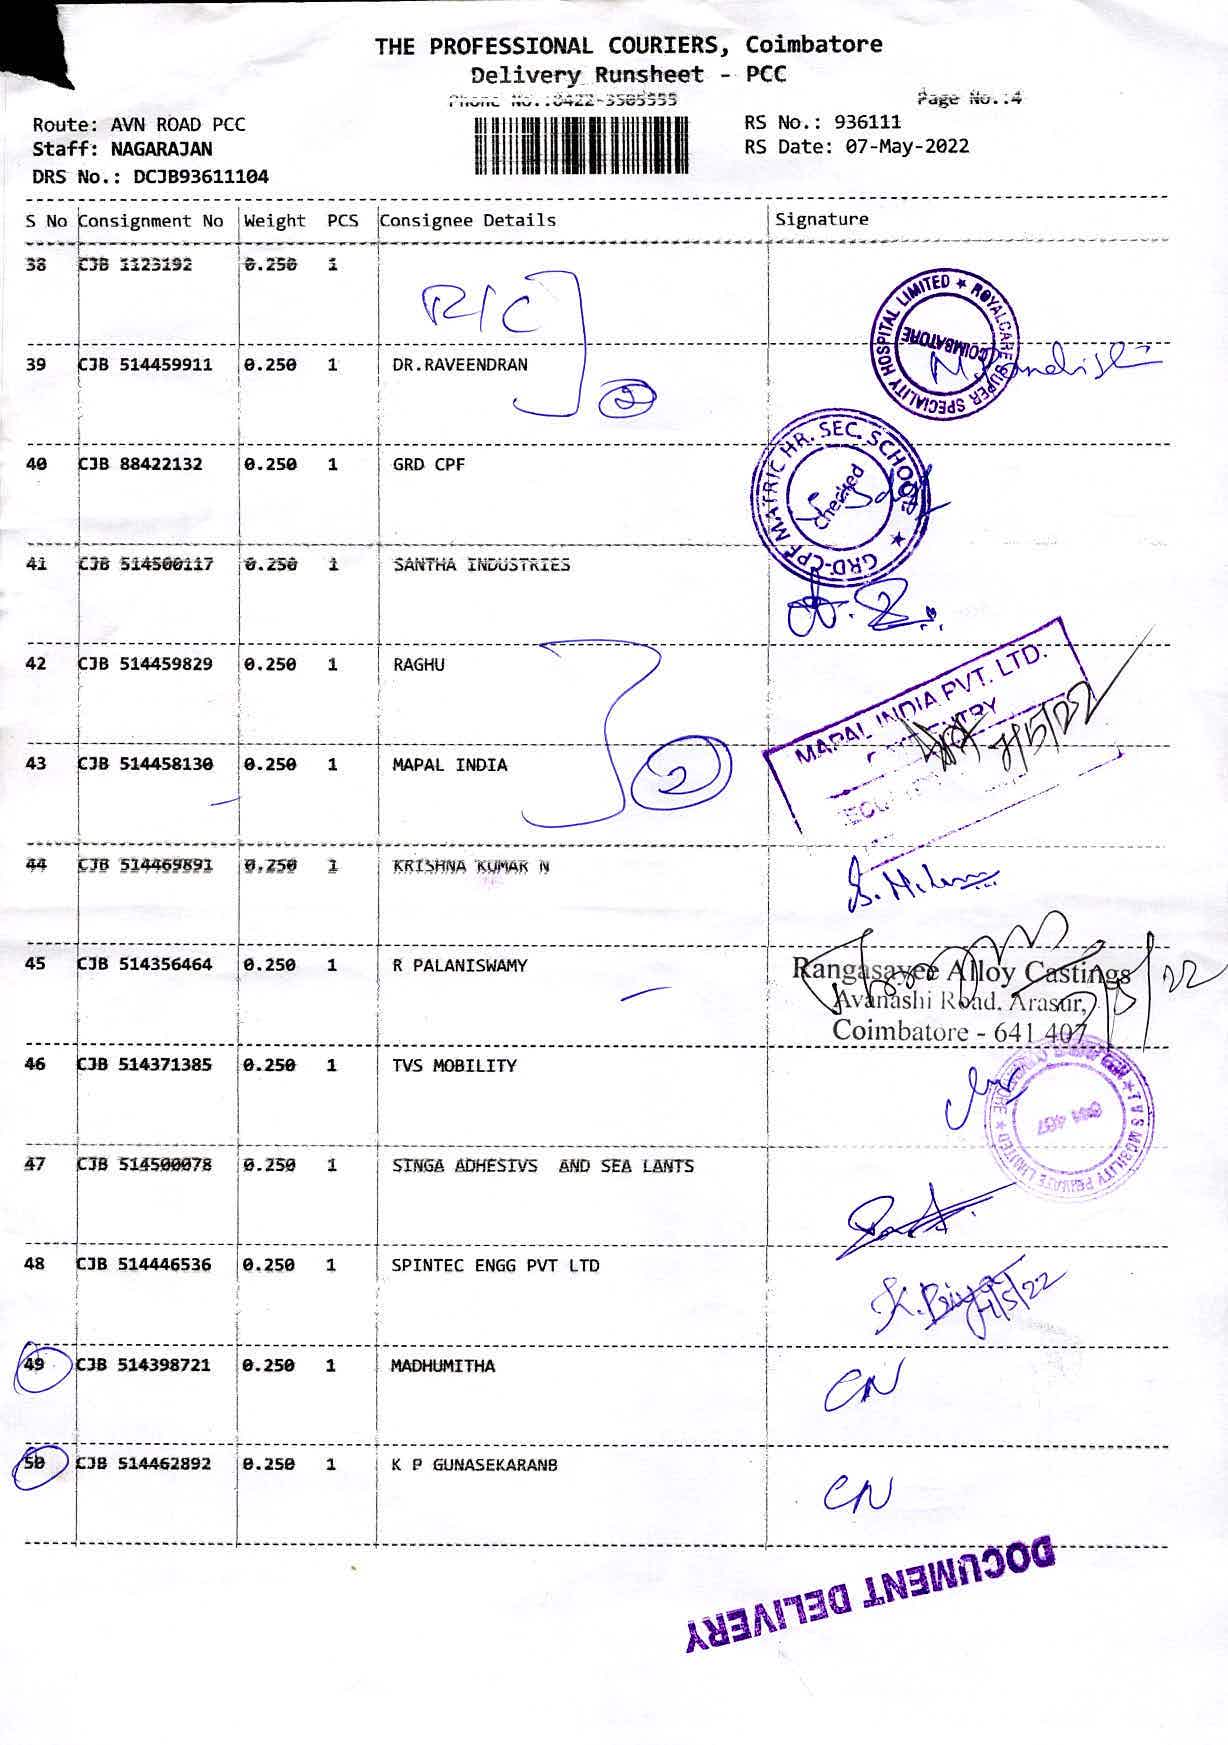 THE PROFESSIONAL COURIERS, Coimbatore
Delivery Runsheet - PCC
Phone No.:0422-3505555
Page No.:4
Route: AVN ROAD PCC
RS No.: 936111
Staff: NAGARAJAN
RS Date: 07-May-2022
DRS No.: DCJB93611104
S No Consignment No Weight PCS Consignee Details Signature
38 CJB 1123192 0.250 1
R/C
ROYALCARE SUPER SPECIALITY HOSPITAL LIMITED
COIMBATORE
39 CJB 514459911 0.250 1 DR.RAVEENDRAN
2
40 CJB 88422132 0.250 1 GRD CPF
GRD-CPF MATRIC HR. SEC. SCHOOL
Checked
41 CJB 514500117 0.250 1 SANTHA INDUSTRIES
42 CJB 514459829 0.250 1 RAGHU
MAPAL INDIA PVT. LTD.
7/5/22
43 CJB 514458130 0.250 1 MAPAL INDIA
2
44 CJB 514469891 0.250 1 KRISHNA KUMAR N
45 CJB 514356464 0.250 1 R PALANISWAMY
Rangasayee Alloy Castings
Avanashi Road, Arasur,
Coimbatore - 641 407
46 CJB 514371385 0.250 1 TVS MOBILITY
TVS MOBILITY PRIVATE LIMITED
47 CJB 514500078 0.250 1 SINGA ADHESIVS AND SEA LANTS
48 CJB 514446536 0.250 1 SPINTEC ENGG PVT LTD
K. Priya 7/5/22
49 CJB 514398721 0.250 1 MADHUMITHA
CN
50 CJB 514462892 0.250 1 K P GUNASEKARANB
CN
DOCUMENT DELIVERY